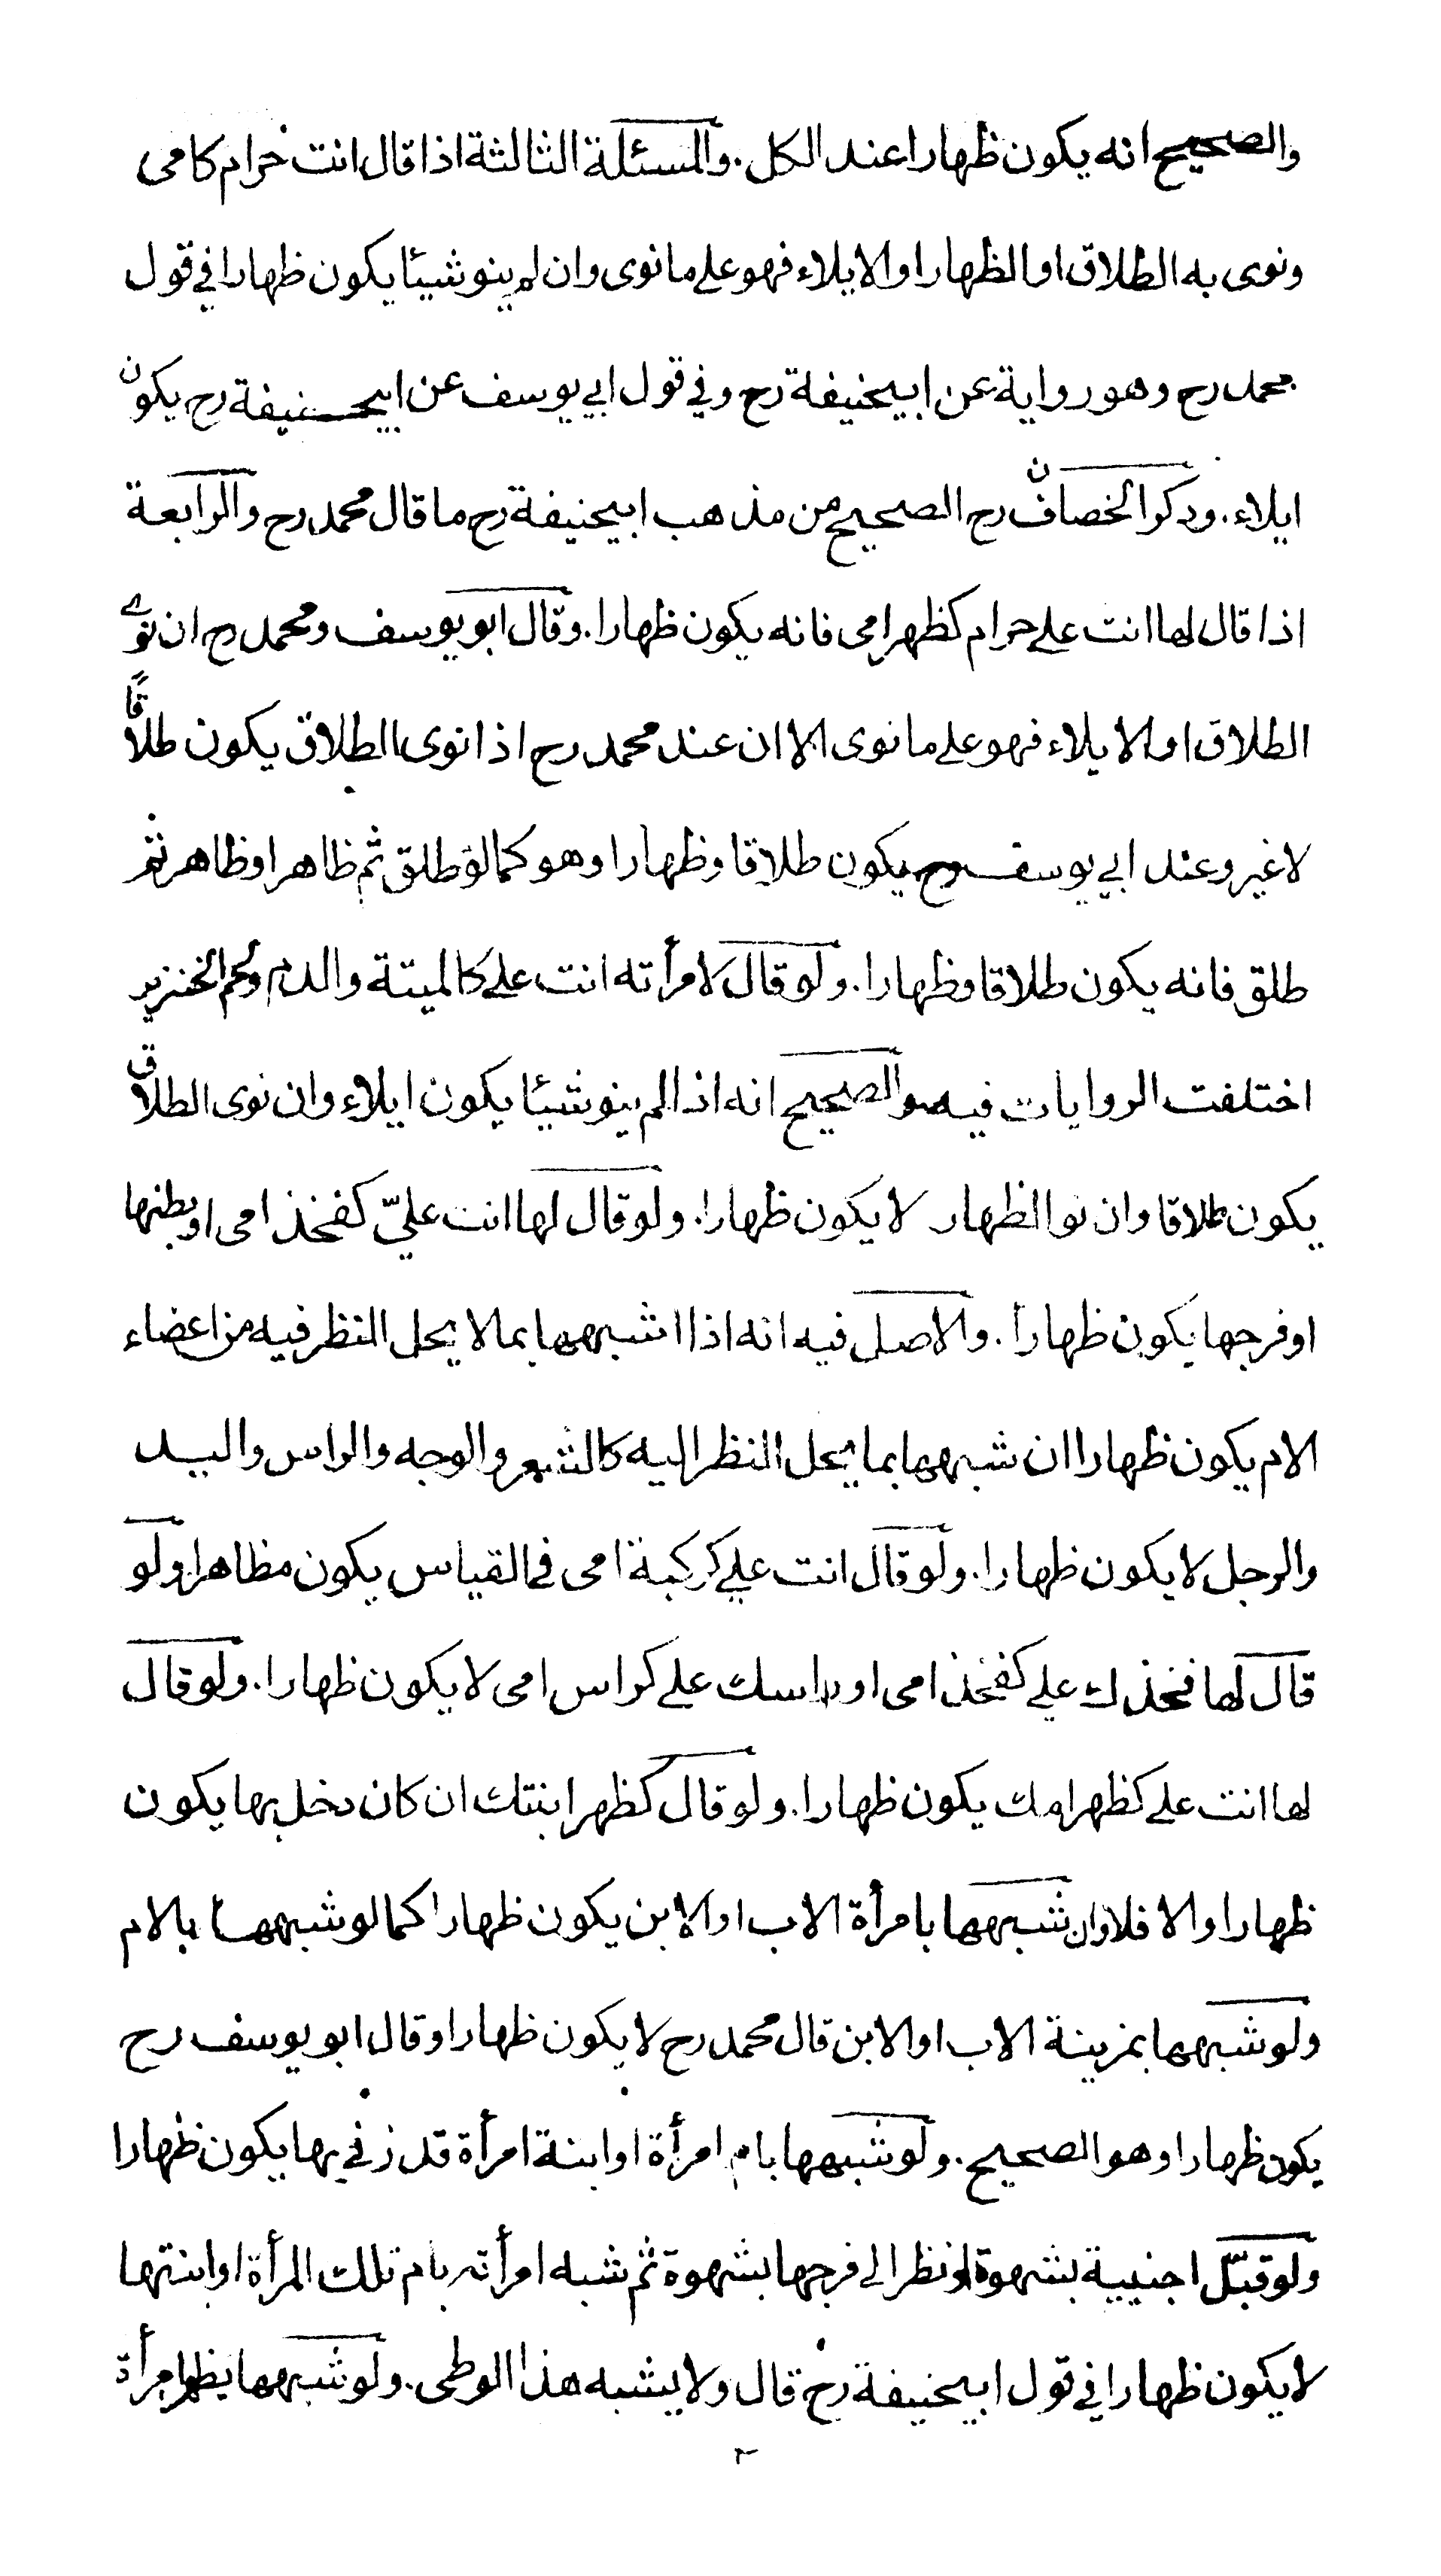 والصحيح انه يكون ظهارا عند الكل. والمسئلة الثالثة اذا قال انت حرام كامى
ونوى به الطلاق او الظهار او الايلاء فهو على ما نوى وان لم ينو شيئا يكون ظهارا في قول
محمد رح وهو رواية عن ابيحنيفة رح وفي قول ابي يوسف عن ابيحنيفة رح يكون
ايلاء. وذكر الخصاف رح الصحيح من مذهب ابيحنيفة رح ما قال محمد رح والرابعة
اذا قال لها انت على حرام كظهر امى فانه يكون ظهارا. وقال ابو يوسف ومحمد رح ان نوى
الطلاق او الايلاء فهو على ما نوى الا ان عند محمد رح اذا نوى الطلاق يكون طلاقًا
لا غير وعند ابي يوسف رح يكون طلاقا وظهارا وهو كما لو طلق ثم ظاهر او ظاهر ثم
طلق فانه يكون طلاقا وظهارا. ولو قال لامرأته انت على كالميتة والدم ولحم الخنزير
اختلفت الروايات فيه والصحيح انه اذا لم ينو شيئا يكون ايلاء وان نوى الطلاق
يكون طلاقا وان نوا الظهار لا يكون ظهارا. ولو قال لها انت عليّ كفخذ امى او بطنها
او فرجها يكون ظهارا. والاصل فيه انه اذا اشبهها بما لا يحل النظر فيه من اعضاء
الام يكون ظهارا ان شبهها بما يحل النظر اليه كالشعر والوجه والراس واليد
والرجل لا يكون ظهارا. ولو قال انت على كركبة امى فى القياس يكون مظاهرا. ولو
قال لها فخذك على كفخذ امى او راسك على كراس امى لا يكون ظهارا. ولو قال
لها انت على كظهر امك يكون ظهارا. ولو قال كظهر ابنتك ان كان دخل بها يكون
ظهارا والا فلا وان شبهها بامرأة الاب او الابن يكون ظهارا كما لو شبهها بالام
ولو شبهها بمزينة الاب او الابن قال محمد رح لا يكون ظهارا وقال ابو يوسف رح
يكون ظهارا وهو الصحيح. ولو شبهها بام امرأة او ابنة امرأة قد زنى بها يكون ظهارا
ولو قبّل اجنبية بشهوة او نظر الى فرجها بشهوة ثم شبه امرأته بام تلك المرأة او ابنتها
لا يكون ظهارا في قول ابيحنيفة رح قال ولا يشبه هذا الوطى. ولو شبهها بظهر امرأة